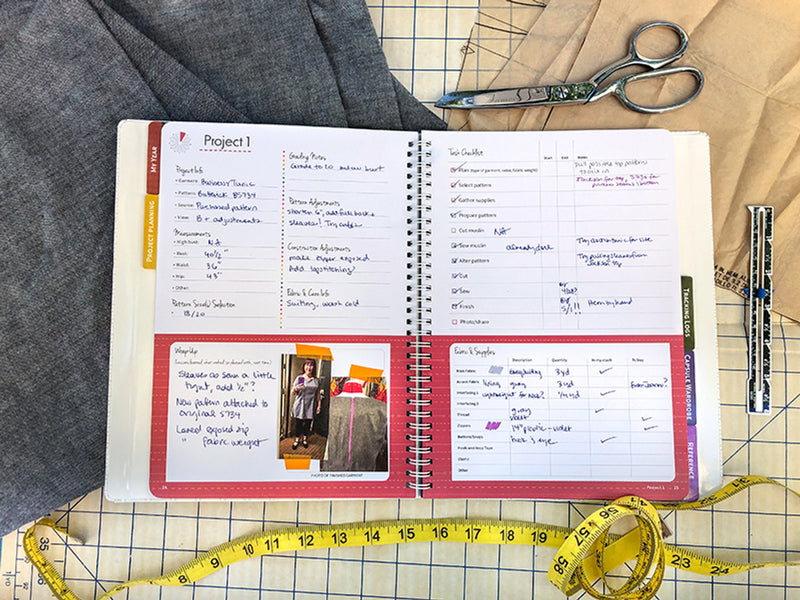 MY YEAR
PROJECT PLANNING
Project 1
Project Info
• Garment: Business Tunic
• Pattern: Butterick B5734
• Source: Purchased pattern
• View: B + adjustments
Measurements
• High bust: NA
• Bust: 40 1/2"
• Waist: 36"
• Hip: 43"
• Other:
Pattern Size(s) Selection
• 18/20
Grading Notes
Grade to 20 below bust
Pattern Adjustments
shorten 6", add full back &
sleeves!
Construction Adjustments
make zipper exposed
Add topstitching?
Fabric & Care Info
Suiting, wash cold
Wrap Up
Sleeves as sewn a little
tight, add 1/2"?
New pattern attached to
original 5734
Loved exposed zip
" fabric weight
PHOTO OF FINISHED GARMENT
24
Task Checklist
Start
End
Notes
Plan (type of garment, value, fabric, weight)
pull possible top patterns
Select pattern
Gather supplies
Prepare pattern
Cut muslin NA
Sew muslin already done
Try as a tunic for size
Alter pattern
Try pulling sleeves from
top
Cut
Sew
Finish
5/1!!
Hem by hand
Photo/share
Fabric & Supplies
Description
Quantity
In my stash
To buy
Main Fabric
3 yd
Accent Fabric
lining
gray
3 yd
from Joann?
Interfacing 1
lightweight for neck?
Interfacing 2
Thread
gray
violet
Zippers
14" plastic - violet
Buttons/Snaps
hook & eye
Hooks and Eyes/Tape
Elastic
Other
Project 1
25
TRACKING LOGS
CAPSULE WARDROBE
REFERENCE
8 9 10 11 12 13 14 15 16 17 18 19
56
57
58
23
24
35